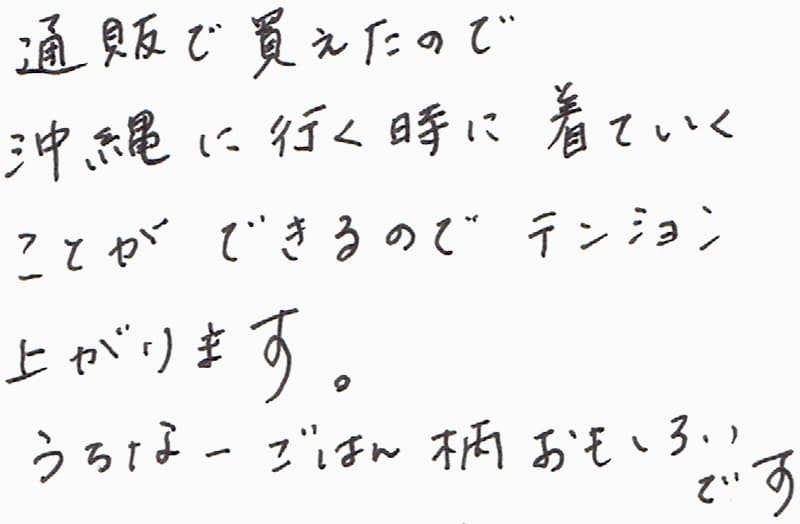 通販で買えたので
沖縄に行く時に着ていく
ことができるのでテンション
上がります。
うちなーごはん柄おもしろい
です